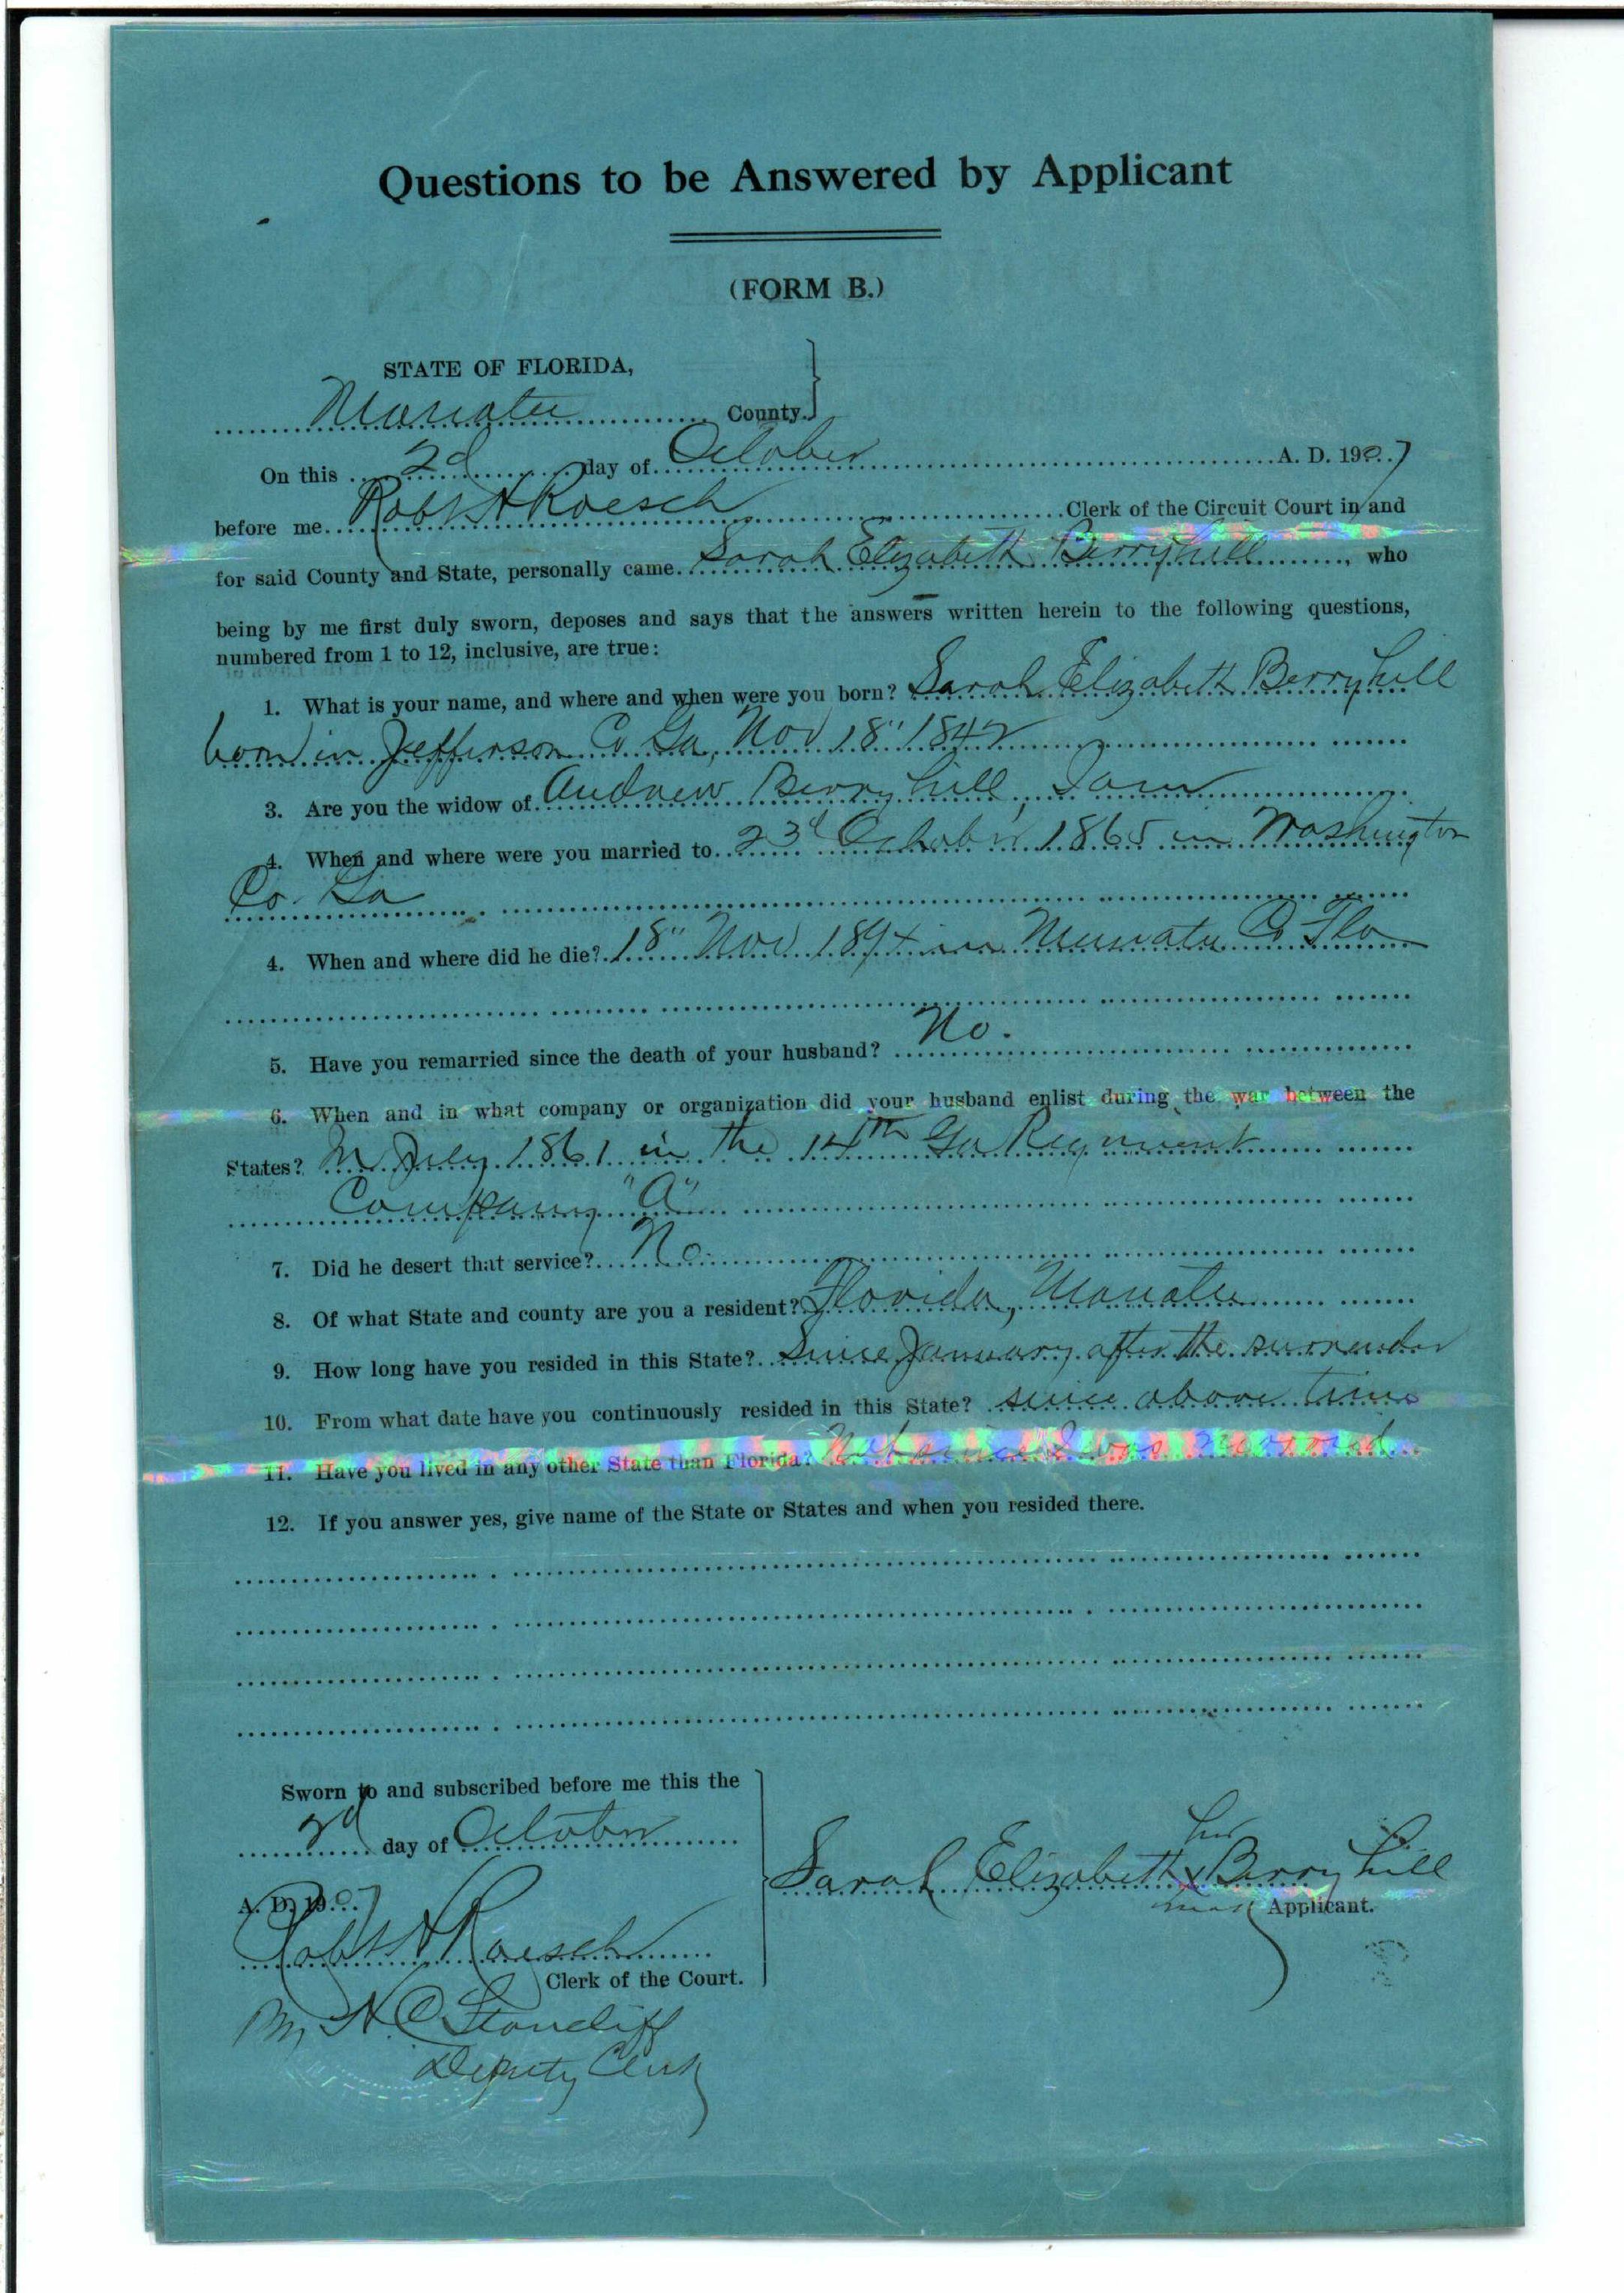 Questions to be Answered by Applicant
(FORM B.)
STATE OF FLORIDA,
Manatee County.
On this 2d day of October A. D. 1907
before me Robt H Roesch Clerk of the Circuit Court in and
for said County and State, personally came Sarah Elizabeth Berryhill, who
being by me first duly sworn, deposes and says that the answers written herein to the following questions,
numbered from 1 to 12, inclusive, are true:
1. What is your name, and where and when were you born? Sarah Elizabeth Berryhill
born in Jefferson Co Ga, Nov 18" 1842
3. Are you the widow of Andrew Berryhill, I am
4. When and where were you married to 23d October 1865 in Washington
Co. Ga
4. When and where did he die? 18" Nov 1894 in Manatee Co Fla
5. Have you remarried since the death of your husband? No.
6. When and in what company or organization did your husband enlist during the war between the
States? In July 1861 in the 14th Ga Regiment
Company "A"
7. Did he desert that service? No
8. Of what State and county are you a resident? Florida, Manatee
9. How long have you resided in this State? Since January after the surrender
10. From what date have you continuously resided in this State? since above time
11. Have you lived in any other State than Florida? Not since I was married
12. If you answer yes, give name of the State or States and when you resided there.
Sworn to and subscribed before me this the
2d day of October
A. D. 1907
Robt H Roesch
Clerk of the Court.
By H. C. Stancliff
Deputy Clerk
her
Sarah Elizabeth x Berryhill
mark Applicant.